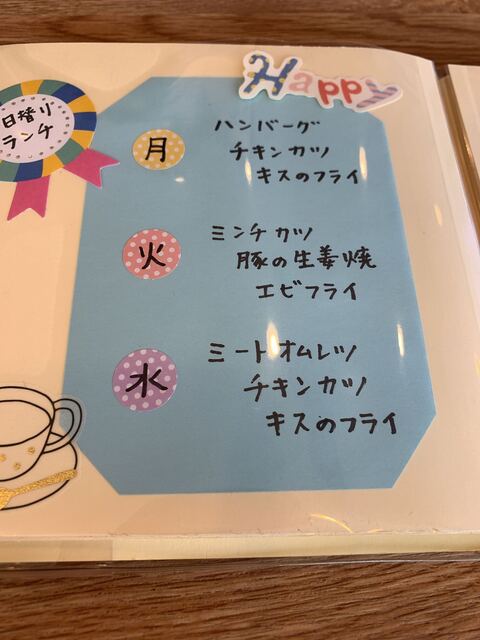 Happy
日替り
ランチ
月
ハンバーグ
チキンカツ
キスのフライ
火
ミンチカツ
豚の生姜焼
エビフライ
水
ミートオムレツ
チキンカツ
キスのフライ